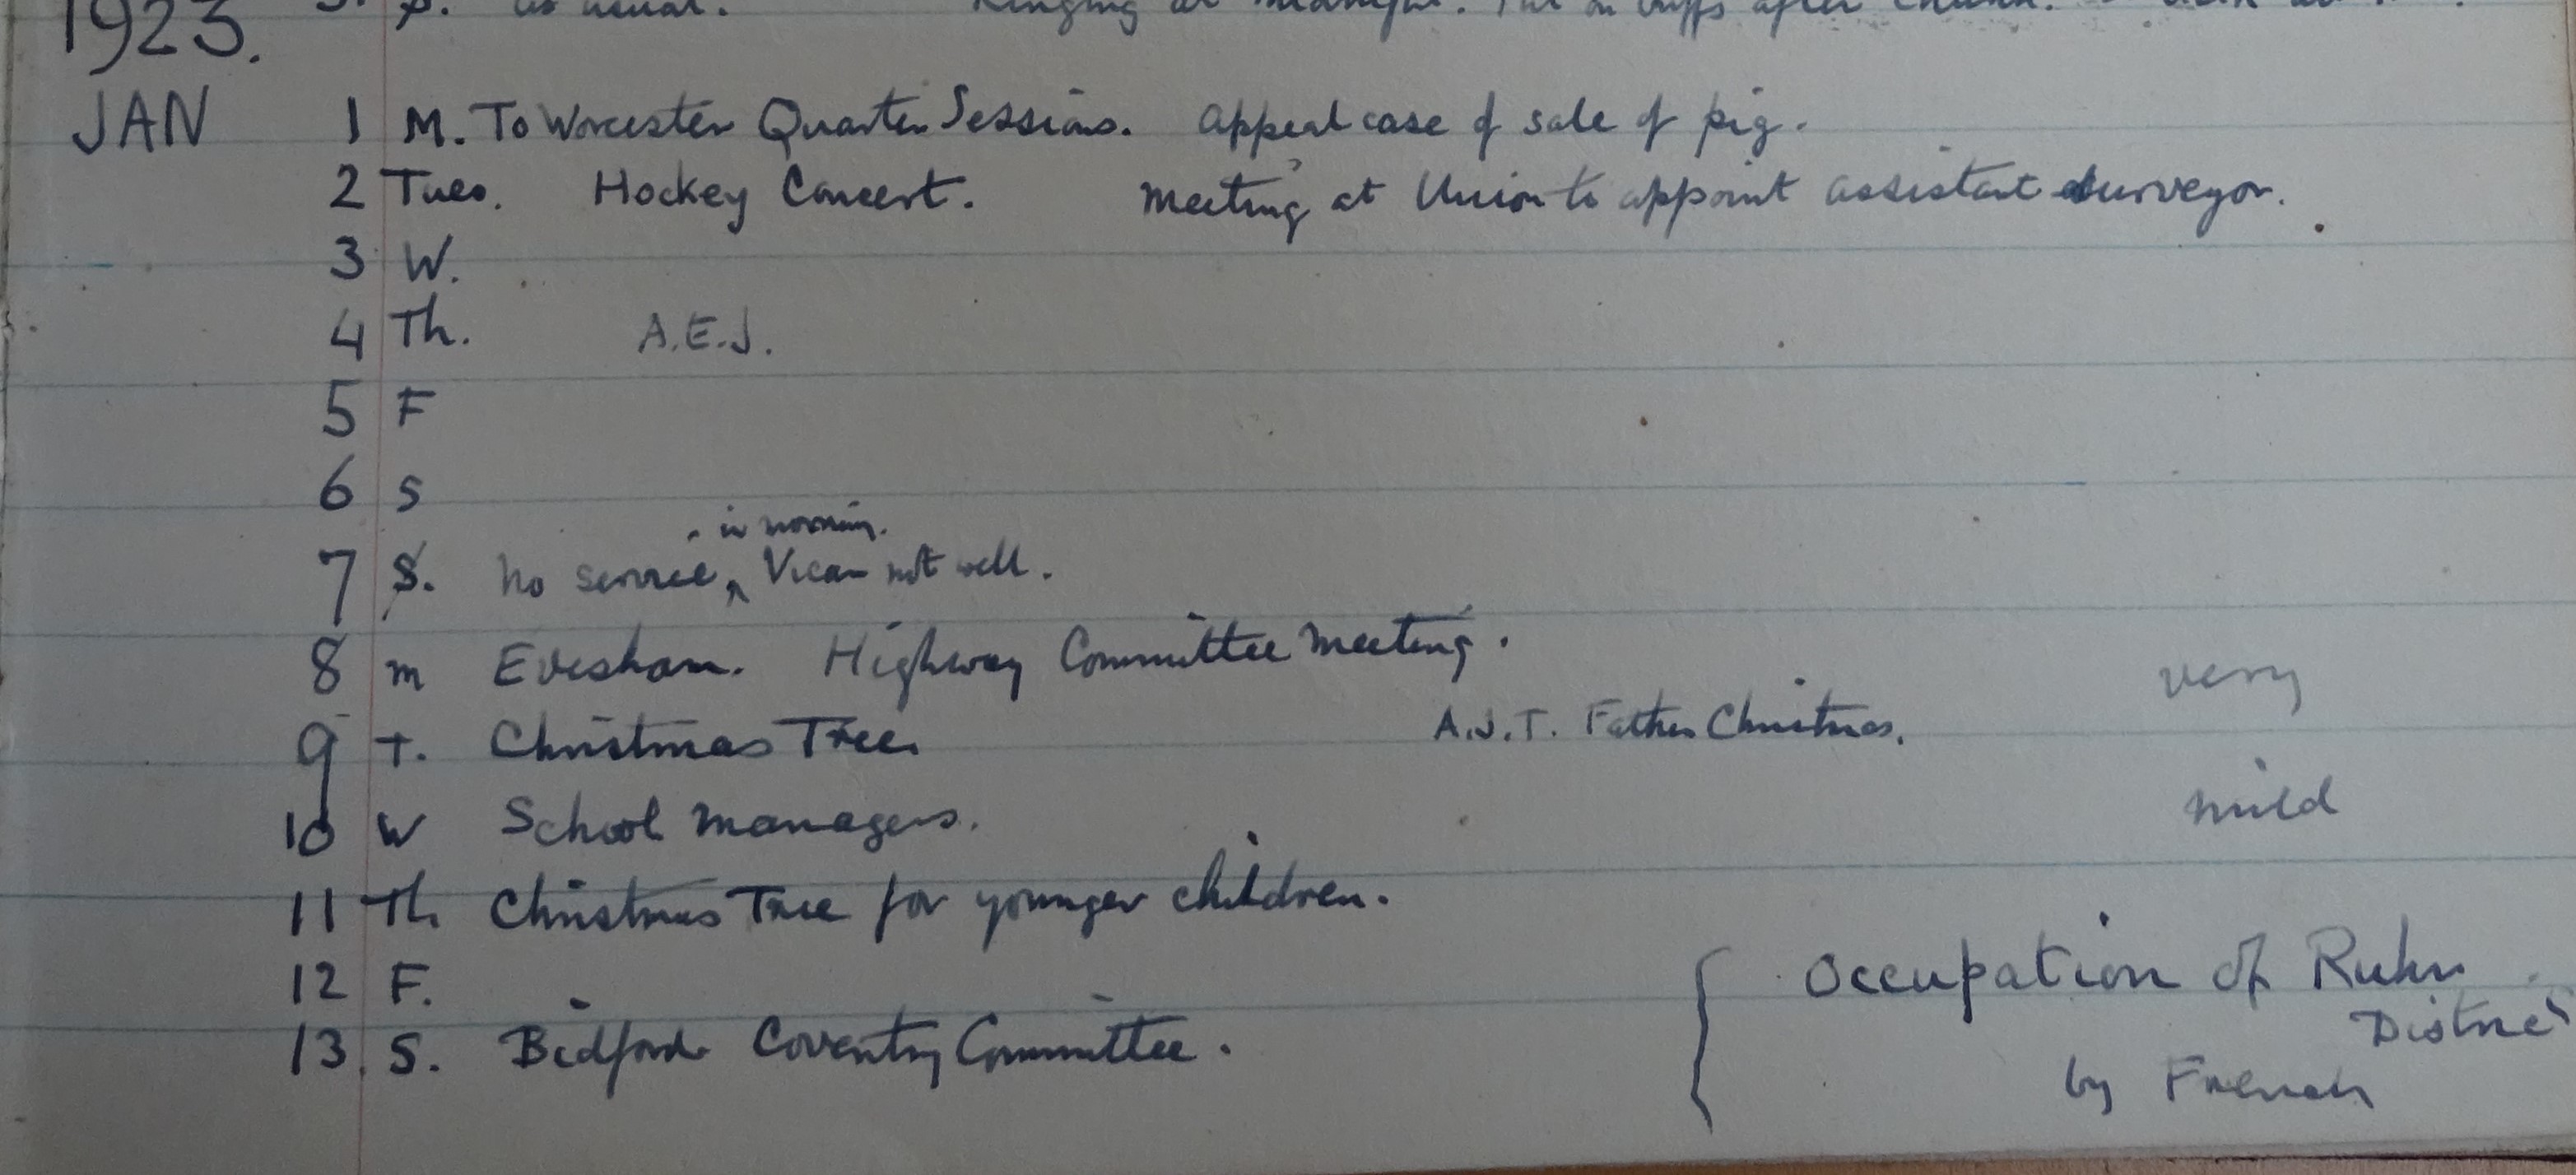 as usual. Ringing at midnight. Put on buffs after
1923.
JAN 1 M. To Worcester Quarter Sessions. Appeal case of sale of pig.
2 Tues. Hockey Concert. Meeting at Union to appoint assistant surveyor.
3 W.
4 Th. A.E.J.
5 F
6 S
in morning.
7 S. No service, ^ Vicar not well.
8 M Evesham. Highway Committee Meeting. very
9 T. Christmas Tree. A.J.T. Father Christmas.
10 W School Managers. mild
11 Th Christmas Tree for younger children.
12 F. { Occupation of Ruhr
District
13. S. Bidford Coventry Committee. by French